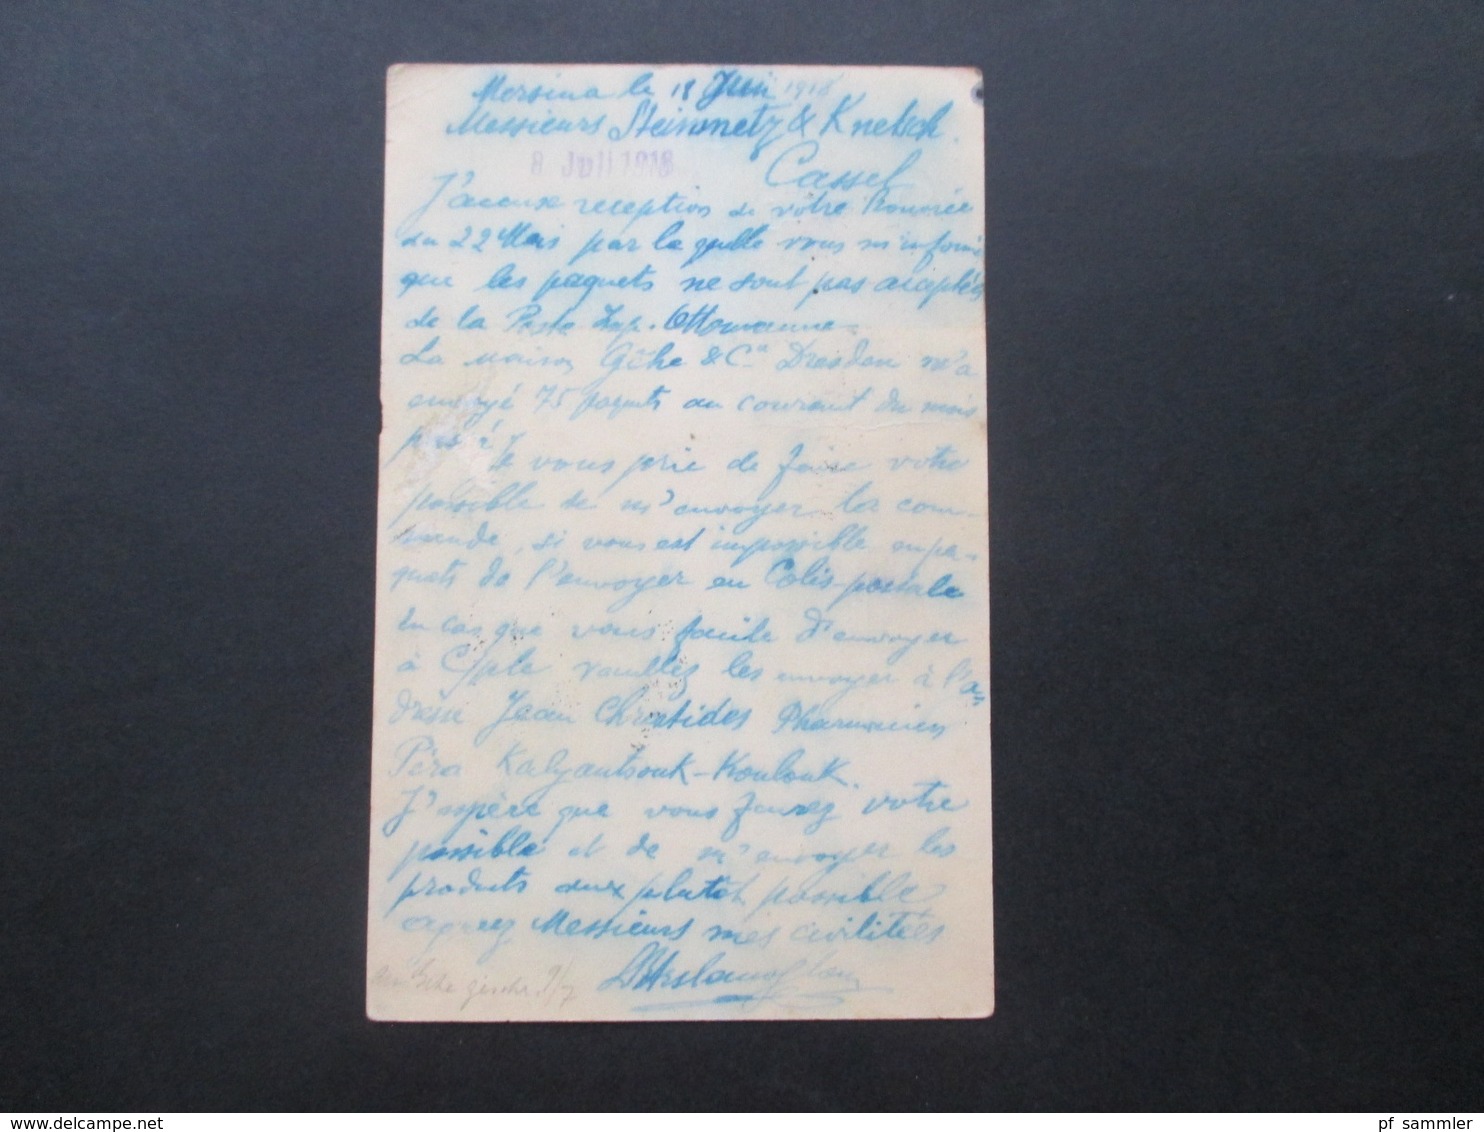 Mersina le 18 Juin 1918
Messieurs Steinmetz & Knetsch.
8 Juli 1918
Cassel
J'accuse reception de vôtre honorée
du 22 Mai par laquelle vous m'informé
que les paquets ne sont pas acceptés
de la Poste Imp. Ottomanne.
La maison Géhe & Cie Dresden m'a
envoyé 75 paquets au courant du mois
passé.
Je vous prie de faire votre
possible de m'envoyer la com-
mande, si vous est impossible en pa-
quets de l'envoyer en Colis-postale
En cas que vous facile d'envoyer
à C/ple veuillez les envoyer à l'a-
dresse Jean Christides Pharmacien
Péra Kalyantsouk-Koulouk.
J'espère que vous faurez votre
possible et de m'envoyer les
produits aux plutôt possible
agreez Messieurs mes civilitées
D. Arslanoglou
an Gehe geschr. 9/7
www.delcampe.net
pf_sammler